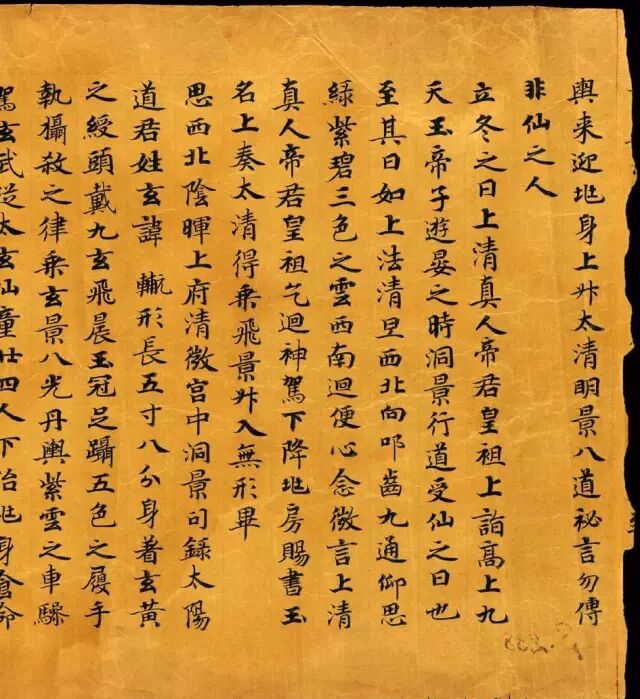 輿来迎兆身上升太清明景八道祕言勿傳
非仙之人
立冬之日上清真人帝君皇祖上詣高上九
天玉帝子遊晏之時洞景行道受仙之日也
至其日如上法清旦西北向叩齒九通仰思
綠紫碧三色之雲西南迴便心念微言上清
真人帝君皇祖乞迴神駕下降兆房賜書玉
名上奏太清得乘飛景升入無形畢
思西北陰暉上府清微宮中洞景司錄太陽
道君姓玄諱 形長五寸八分身著玄黃
之綬頭戴九玄飛晨玉冠足躡五色之履手
執攝殺之律乘玄景八光丹輿紫雲之車驂
駕玄武從太玄仙童廿四人下治兆身命